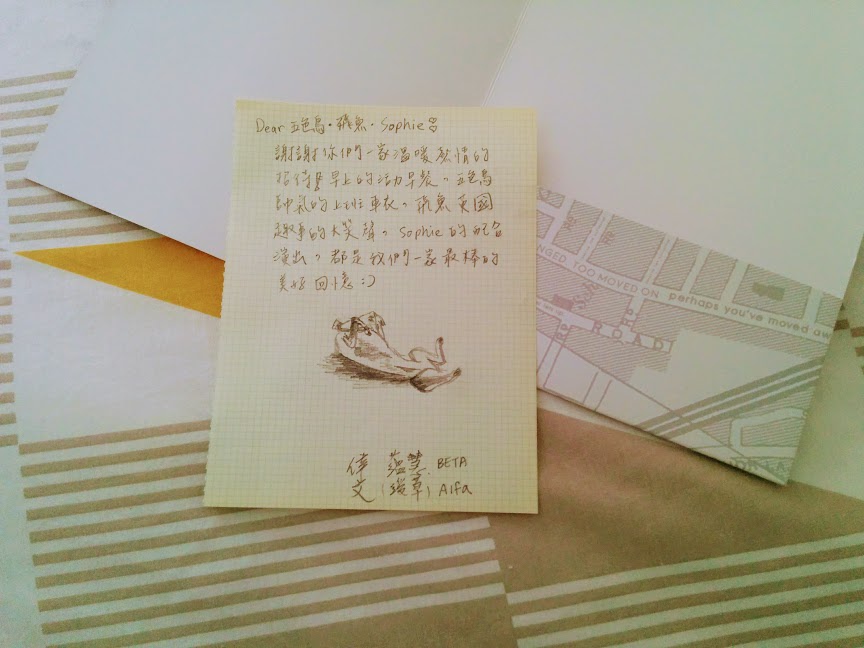 Dear 五色鳥·飛魚·Sophie
謝謝你們一家溫暖熱情的
招待 早上的活力早餐。五色鳥
帥氣的上班車衣。飛魚英國
趣事的大笑聲。Sophie的
演出。都是我們一家最棒的
美好回憶:)
偉 蘊慧. BETA
文 Alfa
NGED. TOO MOVED ON perhaps you've moved aw
ROAD